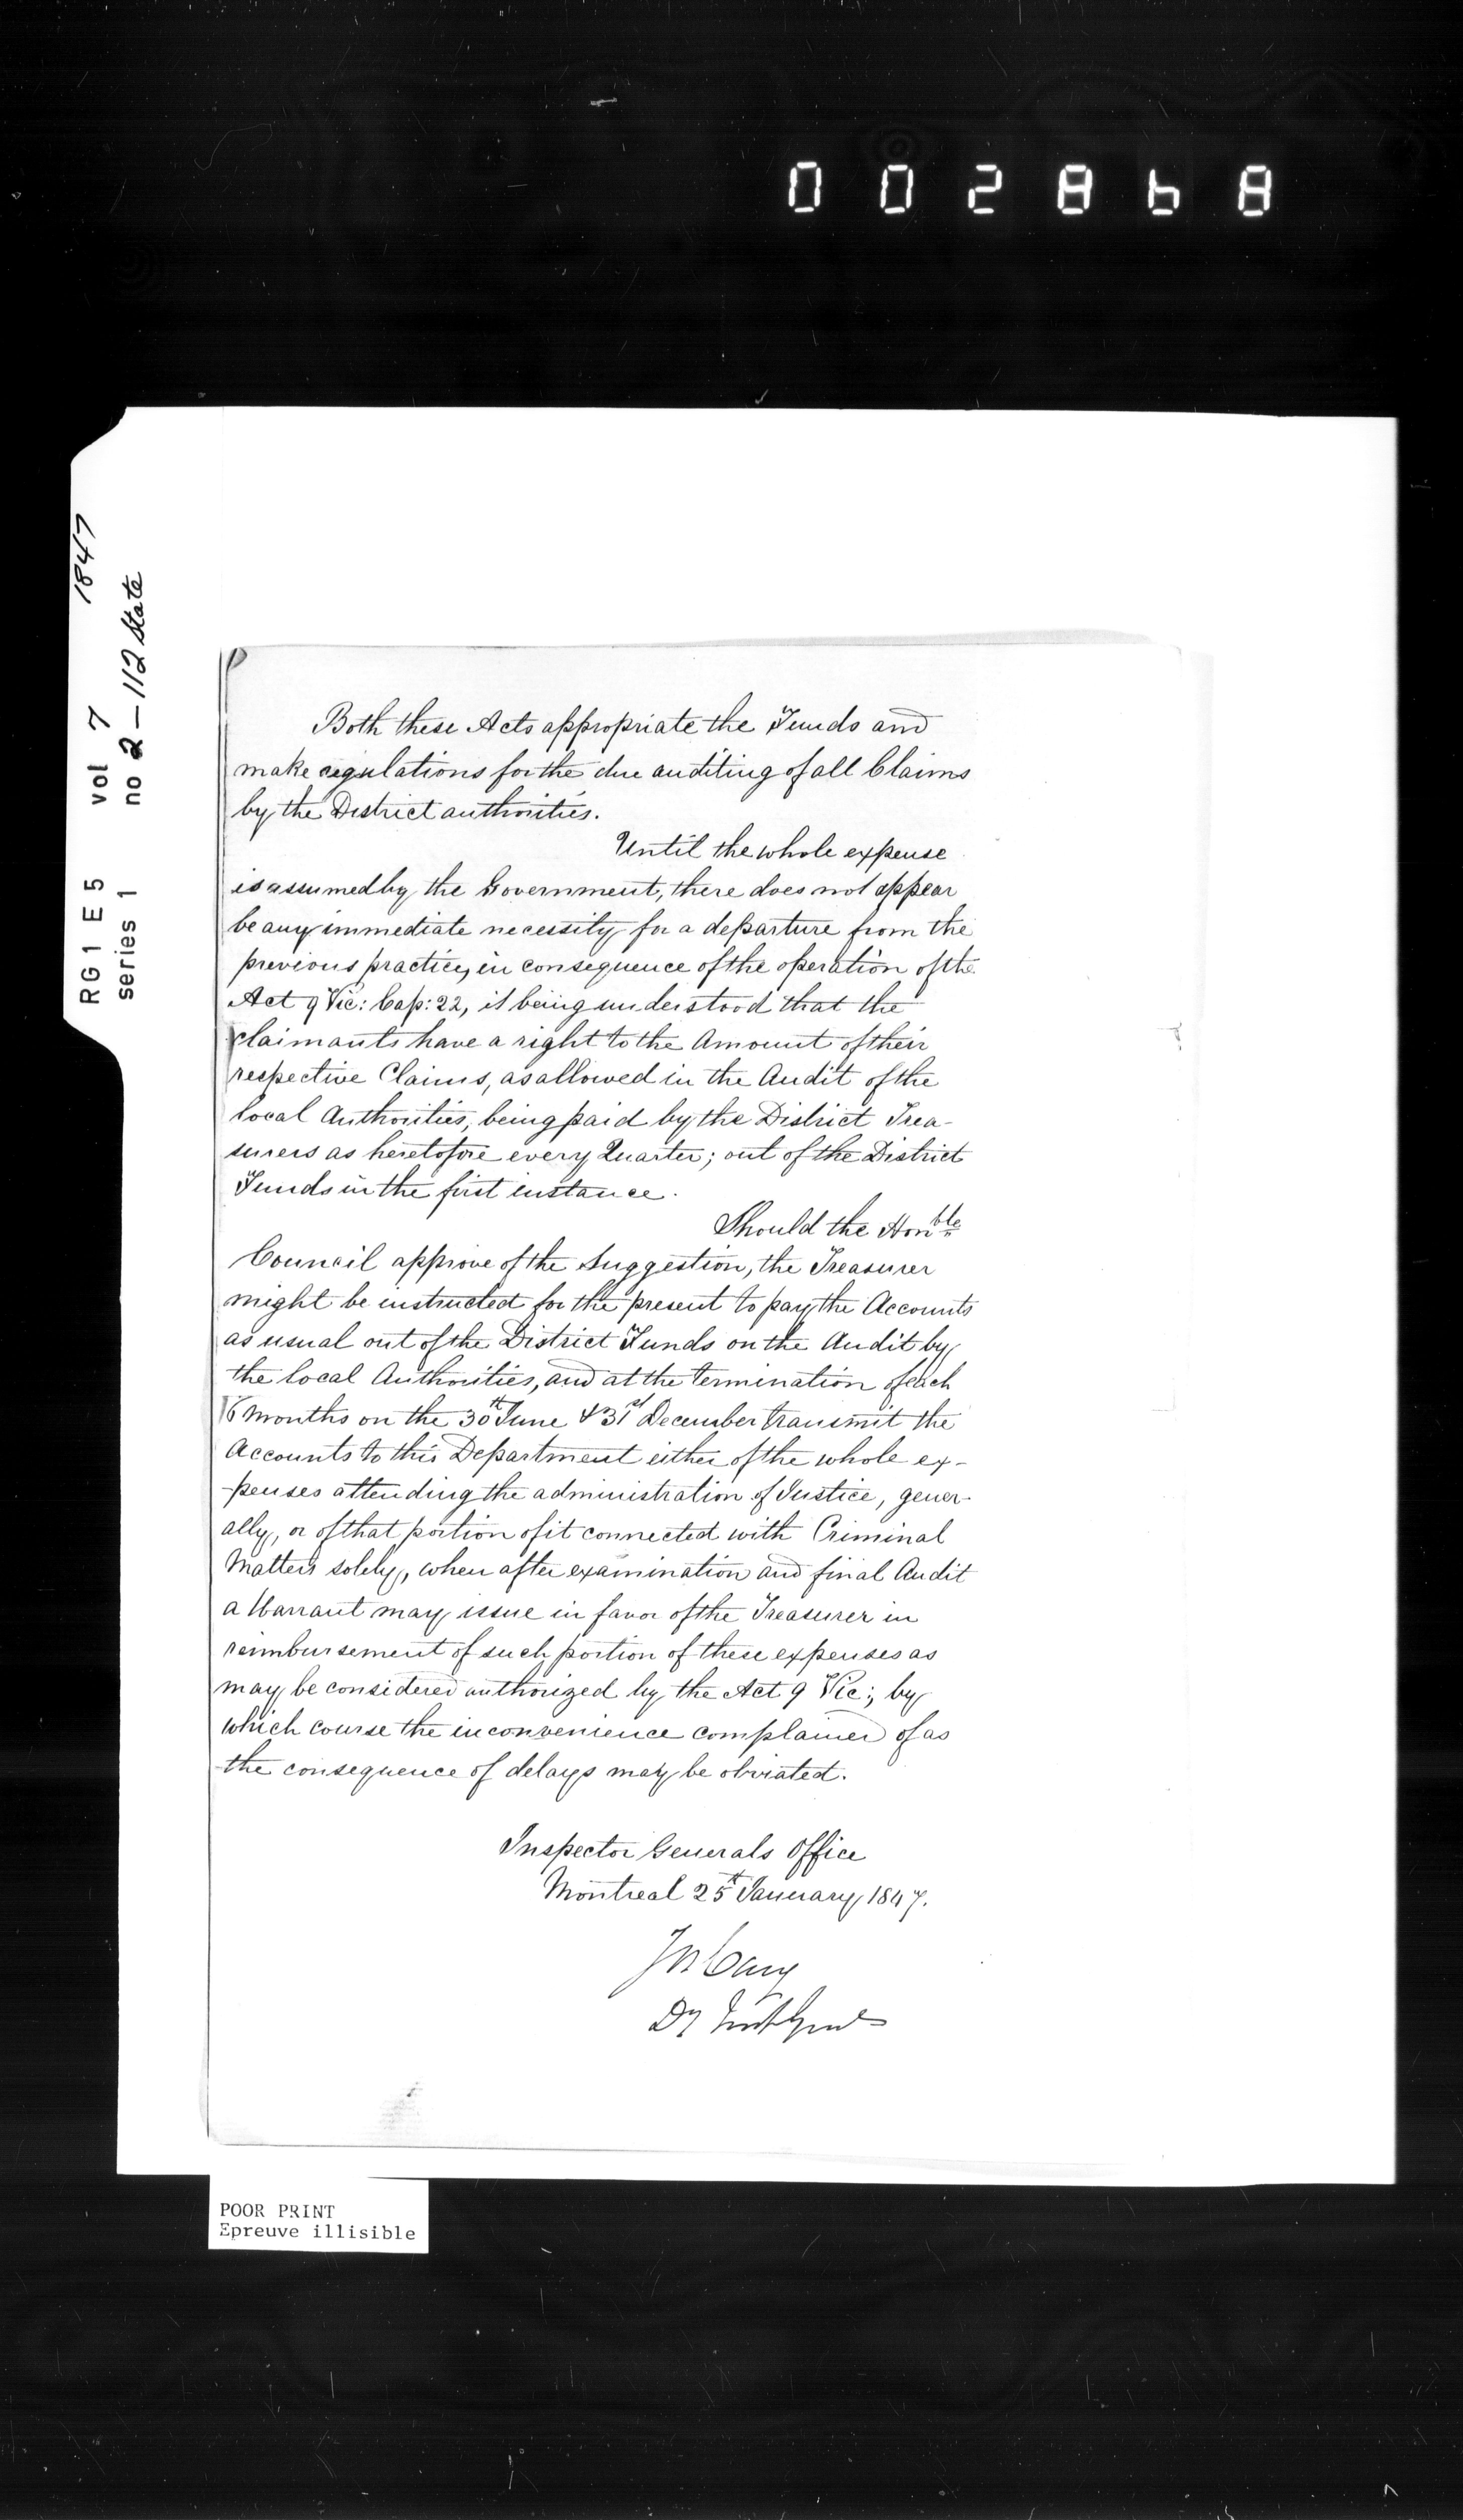 002868
RG1 E5 vol 7 1847
series 1 no 2-112 State
Both these Acts appropriate the Funds and
make regulations for the due auditing of all Claims
by the District authorities.
Until the whole expense
is assumed by the Government, there does not appear
be any immediate necessity for a departure from the
previous practice, in consequence of the operation of the
Act 9 Vic: Cap: 22, it being understood that the
claimants have a right to the Amount of their
respective Claims, as allowed in the Audit of the
local Authorities, being paid by the District Trea-
surers as heretofore every Quarter; out of the District
Funds in the first instance.
Should the Honble
Council approve of the Suggestion, the Treasurer
might be instructed for the present to pay the Accounts
as usual out of the District Funds on the Audit by
the local Authorities, and at the termination of each
6 months on the 30th June & 31st December transmit the
Accounts to this Department either of the whole ex-
-penses attending the administration of Justice, gener-
ally, or of that portion of it connected with Criminal
Matters solely, when after examination and final Audit
a Warrant may issue in favor of the Treasurer in
reimbursement of such portion of these expenses as
may be considered authorized by the Act 9 Vic:, by
which course the inconvenience complained of as
the consequence of delays may be obviated.
Inspector Generals Office
Montreal 25th January 1847.
Jos Cary
Dy Inst Genl
POOR PRINT
Epreuve illisible